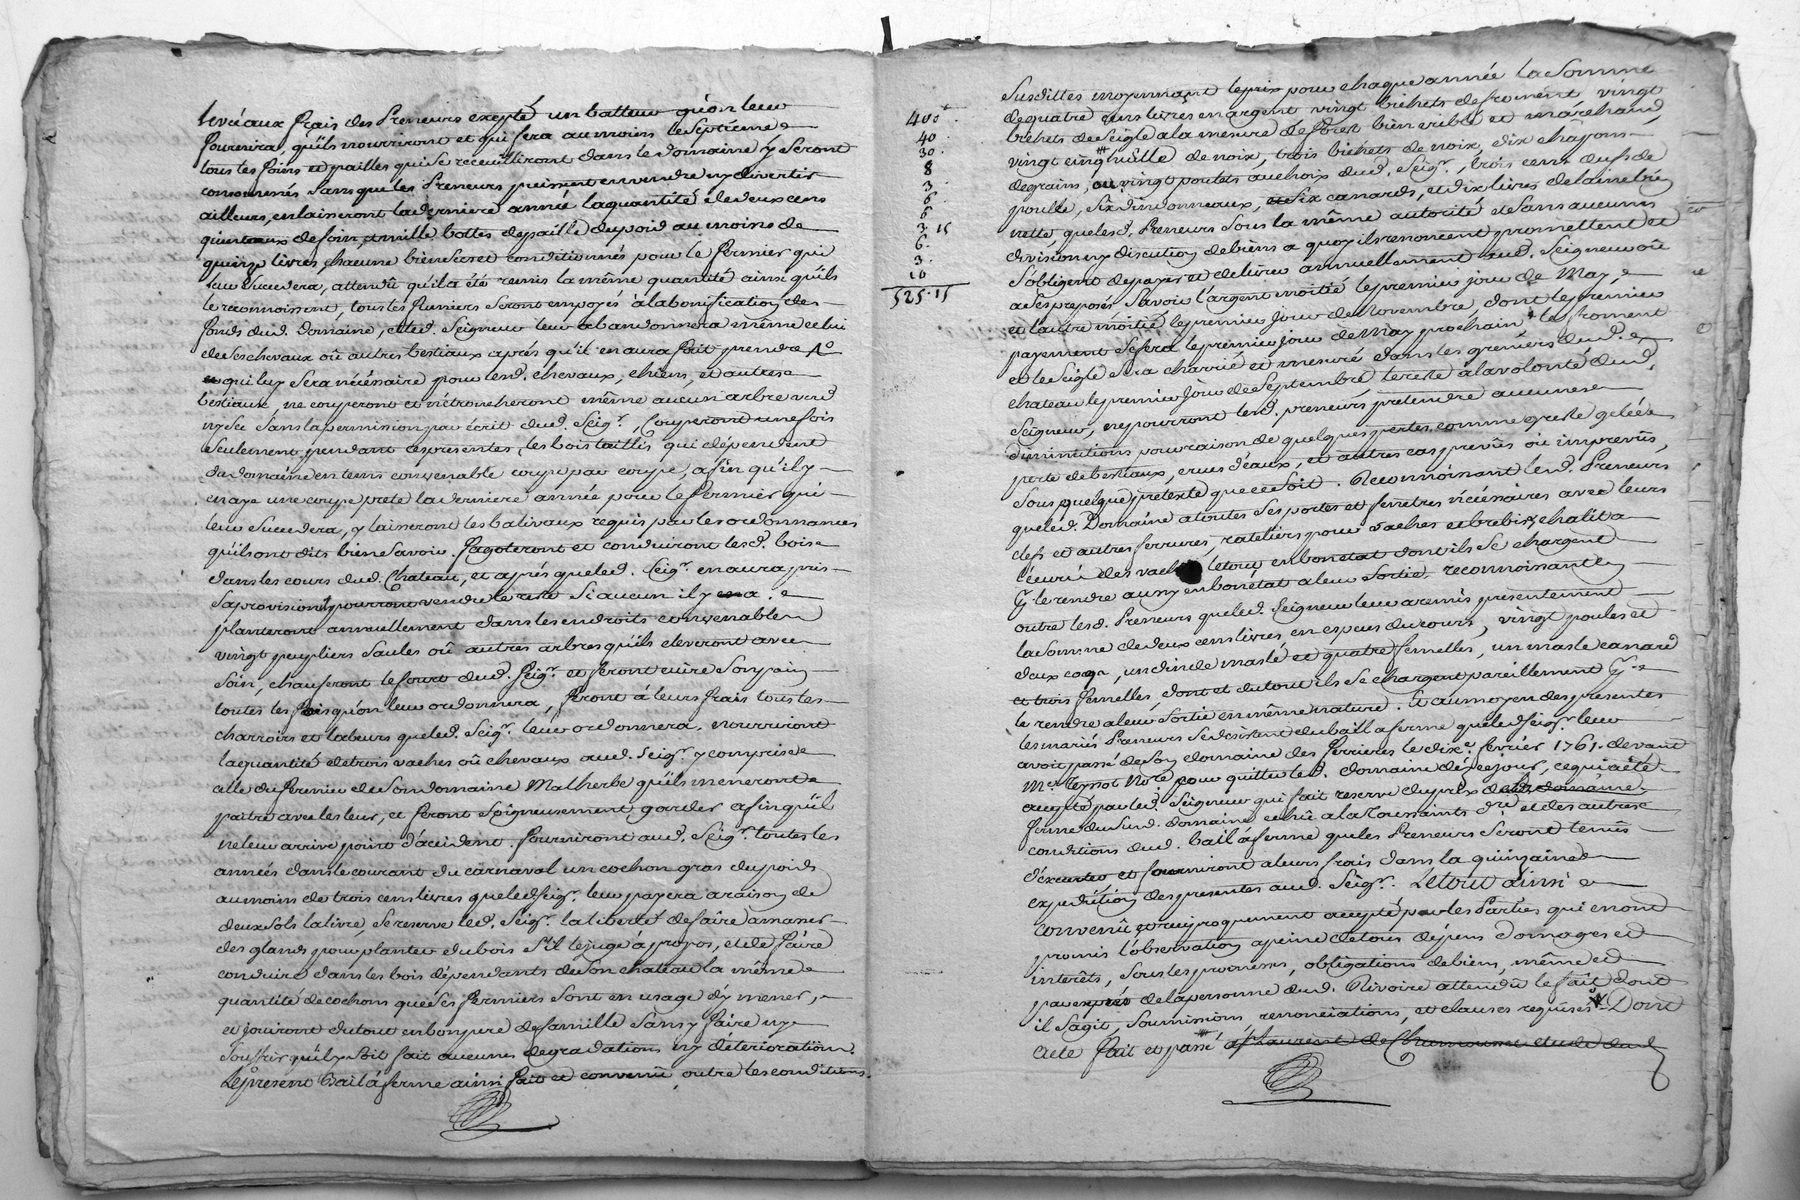 levé aux frais des Preneurs excepté un batteur qu'on leur
fournira, qu'ils nourriront et qui sera au moins le Septième
tous les foins et pailles qui se receuilliront dans le domaine y Seront
consommés Sans que les Preneurs puissent en vendre ny divertir
ailleurs, en laisseront la derniere année la quantité de deux cens
quintaux de foin, et mille bottes de paille du poid au moins de
quinze livres chacune bien Secret conditionnés pour le fermier qui
leur Succedera, attendû qu'il a été remis la même quantité ainsi qu'ils
le reconnoissent, tous les fumiers Seront employés à la bonification des
fonds dud. domaine, et led. Seigneur leur abandonnera même celui
de Ses chevaux oû autres bestiaux après qu'il en aura fait prendre
ce qui luy Sera nécéssaire pour lesd. chevaux, chiens, et autres
bestiaux, ne couperont et n'étroncheront même aucun arbre verd
ny Sec Sans la permission par écrit dud. Seigr. Couperont une fois
Seulement pendant ces presentes, les bois taillis qui dépendent
du domaine en tems convenable coupe par coupe, afin qu'il y
en aye une coupe prete la derniere année pour le fermier qui
leur Succedera, y laisseront les balivaux requis par les ordonnances
qu'ils ont dits bien Savoir. fagoteront et conduiront lesd. bois
dans les cours dud. Chateau, et après que led. Seigr. en aura pris
Sa provision, pourront vendre le reste Si aucun il y en a.
planteront annuellement dans les endroits convenables
vingt peupliers Saules oû autres arbres qu'ils eleveront avec
Soin, chauferont le fourt dud. Seigr. et feront cuire Son pain
toutes les fois qu'on leur ordonnera, feront à leurs frais tous les
charroirs et labeurs que led. Seigr. leur ordonnera, nourriront
la quantité de trois vaches oû chevaux aud. Seigr. y comprise
celle du fermier de Son domaine Malherbe qu'ils meneront
paitre avec les leur, et feront Soigneusement garder afin qu'il
ne leur arrive point d'accident. fourniront aud. Seigr. toutes les
années dans le courant du carnaval un cochon gras du poids
au moins de trois cens livres que led. Seigr. leur payera a raison de
deux Sols la livre, Se reserve led. Seigr. la liberté de faire amasser
des glands pour planter du bois S'il le juge à propos, et de faire
conduire dans les bois dépendants de Son chateau la même
quantité de cochons que Ses fermiers Sont en usage d'y mener,
et jouiront du tout en bon pere de famille Sans y faire ny
Souffrir qu'il y Soit fait aucunes degradations ny déteriorations.
Le present Bail à ferme ainsi fait et convenû, outre les conditions
400
40.
30.
8
3.
6.
6
3 15
6.
3.
10
525.15
Susdittes moyennant le prix pour chaque année la Somme
de quatre cens livres en argent vingt bichets de froment vingt
bichets de Seigle a la mesure de forest bien criblé et marchand,
vingt cinq huille de noix, trois bichets de noix, dix chapons
de grains, ou vingt poulets au choix dud. Seigr., trois cens œufs de
poulle, Six dindonneaux, Six canards, et dix livres de laine bien
nette, que lesd. Preneurs Sous la même autorité et Sans aucune
division ny discution de biens a quoy ils renoncent promettent et
S'obligent de payer et delivrer annuellement aud. Seigneur oû
a Ses preposés, Savoir l'argent moitié le premier jour de May,
et l'autre moitié le premier jour de Novembre, dont le premier
payement Se fera le premier jour de May prochain, le froment
et le Seigle Sera charrié et mesuré dans les greniers dud.
chateau le premier jour de Septembre, le reste à la volonté dud.
Seigneur, ne pourront lesd. preneurs pretendre aucunes
diminutions pour raison de quelques pertes comme gresle gelée
perte de bestiaux, crues d'eaux, et autres cas prevûs oû imprevûs,
Sous quelque pretexte que ce Soit. Reconnoissant lesd. Preneurs
que led. Domaine a toutes Ses portes et fenetres nécéssaires avec leurs
clefs et autres ferrures, rateliers pour vaches et brebis, chalit a
l'écurie des vaches le tout en bon etat dont ils Se chargent
le rendre aussy en bon état a leur Sortie, reconnoissant
outre lesd. Preneurs que led. Seigneur leur a remis présentement
la Somme de deux cens livres en especes du cours, vingt poules et
deux coqs, un dinde masle et quatre femelles, un masle canard
et trois femelles, dont et du tout ils Se chargent pareillement
le rendre a leur Sortie en même nature. Et au moyen des presentes
les mariés Preneurs Se desistent du bail a ferme que led. Seigr. leur
avoit passé de Son domaine des ferrieres le dixe. fevrier 1761. devant
Me. Teyssot Nore. pour quitter led. domaine dez ce jour, ce qui a été
accepté par led. Seigneur qui fait reserve du prix de
ferme du Susd. domaine echû a la Toussaints dre. et des autres
conditions dud. bail à ferme que les Preneurs Seront tenus
d'executer et fourniront a leurs frais dans la quinzaine
expedition des presentes aud. Seigr. Le tout ainsi
convenû et reciproquement accepté par les Parties qui en ont
promis l'observation a peine de tous dépens domages et
interêts, Sous les promesses, obligations de biens, même et
par exprès de la personne dud. Rivoire attendû le fait dont
il S'agit, Soumissions renonciations, et clauses requises. Dont
acte fait et passé a St Laurent de Chamousset etude dud.